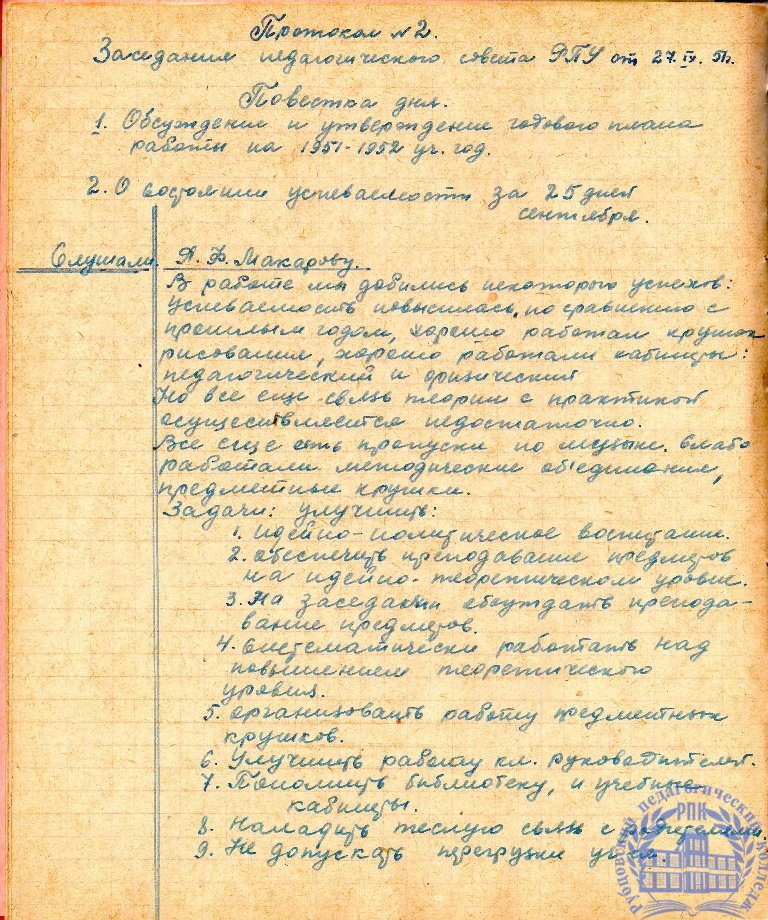 Протокол №2.
Заседания педагогического совета РПУ от 27.IX.51г.
Повестка дня.
1. Обсуждение и утверждение годового плана
работы на 1951-1952 уч. год.
2. О состоянии успеваемости за 25 дней
сентября.
Слушали: А. Ф. Макарову.
В работе мы добились некоторого успехов:
успеваемость повысилась, по сравнению с
прошлым годом, хорошо работал кружок
рисования, хорошо работали кабинеты:
педагогический и физический
Но все еще связь теории с практикой
осуществляется недостаточно.
Все еще есть пропуски по музыке. Слабо
работали методические об'единения,
предметные крушки.
Задачи: улучшить:
1. идейно-политическое воспитание.
2. обеспечить преподавание предметов
на идейно-теоретическом уровне.
3. На заседании обсуждать препода-
вание предметов.
4. систематически работать над
повышением теоретического
уровня.
5. организовать работу предметных
крушков.
6. Улучшить работу кл. руководителей.
7. Пополнить библиотеку, и учебные
кабинеты.
8. Наладить тесную связь с родителями.
9. Не допускать перегрузки
Рубцовский педагогический колледж
РПК